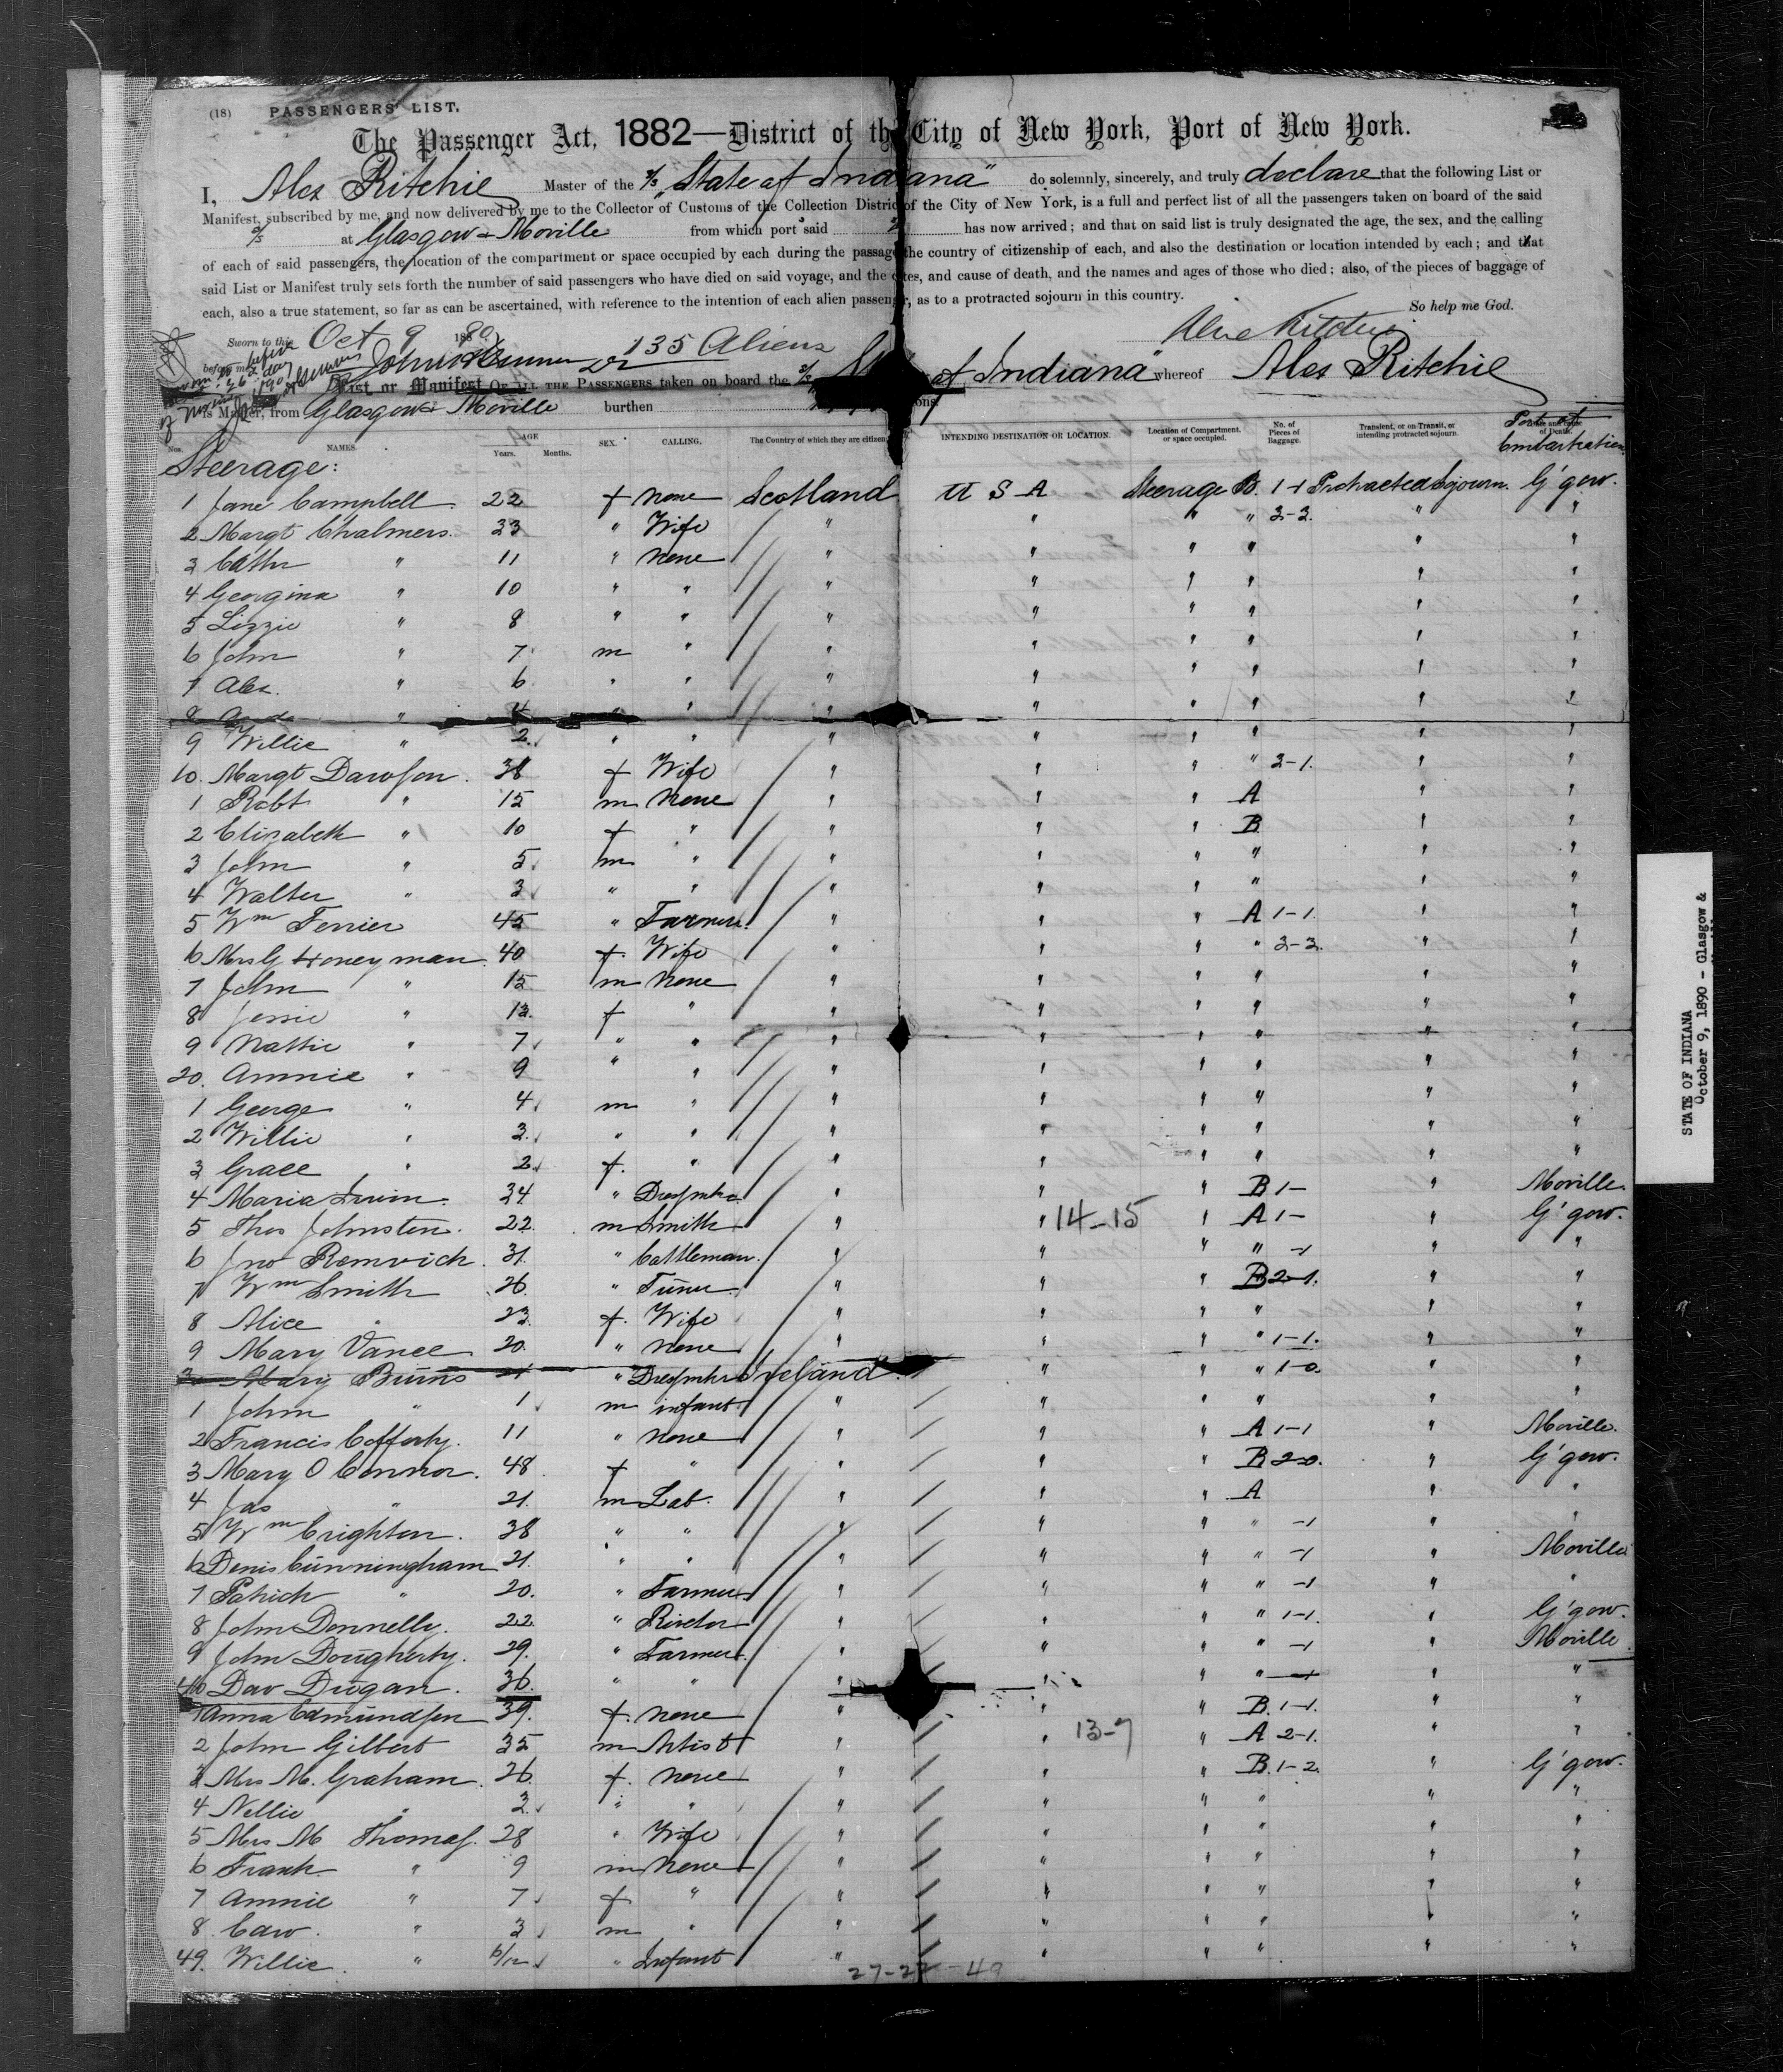 (18) PASSENGERS' LIST.
The Passenger Act, 1882—District of the City of New York, Port of New York.
I, Alex Ritchie Master of the S/S "State of Indiana" do solemnly, sincerely, and truly declare that the following List or
Manifest, subscribed by me, and now delivered by me to the Collector of Customs of the Collection District of the City of New York, is a full and perfect list of all the passengers taken on board of the said
S/S at Glasgow & Moville from which port said has now arrived; and that on said list is truly designated the age, the sex, and the calling
of each of said passengers, the location of the compartment or space occupied by each during the passage the country of citizenship of each, and also the destination or location intended by each; and that
said List or Manifest truly sets forth the number of said passengers who have died on said voyage, and the dates, and cause of death, and the names and ages of those who died; also, of the pieces of baggage of
each, also a true statement, so far as can be ascertained, with reference to the intention of each alien passenger, as to a protracted sojourn in this country. So help me God.
Sworn to this Oct 9 1890 135 Aliens Alex Ritchie
before me
List or Manifest OF ALL THE PASSENGERS taken on board the S/S of Indiana" whereof Alex Ritchie
is Master, from Glasgow & Moville burthen tons
Nos. NAMES. AGE Years. Months. SEX. CALLING. The Country of which they are citizens. INTENDING DESTINATION OR LOCATION. Location of Compartment, or space occupied. No. of Pieces of Baggage. Transient, or on Transit, or intending protracted sojourn. Port of Embarkation
Steerage:
1 Jane Campbell 22 f None Scotland U S A Steerage B. 1-1 Protracted Sojourn G'gow.
2 Margt Chalmers 33 " Wife " " " " 3-3. " "
3 Cathr " 11 " None " " " " " "
4 Georgina " 10 " " " " " " " "
5 Lizzie " 8 " " " " " " " "
6 John " 7 m " " " " " " "
7 Alex. " 6 " " " " " " " "
8 " 4 " " " " " " " "
9 Willie " 2 " " " " " " " "
10. Margt Dawson. 38 f Wife " " " " 3-1. " "
1 Robt " 15 m None " " " A " "
2 Elizabeth " 10 f " " " " B " "
3 John " 5 m " " " " " " "
4 Walter " 3 " " " " " " " "
5 Wm Ferrier 45 " Farmer " " " A 1-1. " "
6 Mrs G Honeyman 40 f. Wife " " " " 3-3. " "
7 John " 15 m None " " " " " "
8 Jessie " 13. f " " " " " " "
9 Mattie " 7 " " " " " " " "
20. Annie " 9 " " " " " " " "
1 George " 4 m " " " " " " "
2 Willie " 3. " " " " " " " "
3 Grace " 2 f. " " " " " " "
4 Maria Irwin. 34 " Dressmkr " " " B 1- " Moville.
5 Thos Johnston. 22. m Smith " " 14-15 " A 1- " G'gow.
6 Jno 31. " Cattleman. " " " " -1 " "
7 Wm Smith 26. " " " " B 2-1. " "
8 Alice " 23. f. Wife " " " " " "
9 Mary Vance 20. " None " " " " 1-1. " "
30 Mary Burns " Dressmkr Ireland " " " 1-0. " "
1 John " 1 m infant " " " " " "
2 Francis Cofferty. 11 " None " " " A 1-1 " Moville.
3 Mary O'Connor. 48 f " " " " B 2-0. " G'gow.
4 Jas " 21. m Lab. " " " A " "
5 Wm Crighton. 38 " " " " " " -1 " "
6 Denis Cunningham 21. " " " " " " -1 " Moville
7 Patrick " 20. " Farmer " " " " -1 " "
8 John Donnelly. 22. " " " " " 1-1. " G'gow.
9 John Dougherty. 29. " Farmer. " " " " -1 " Moville
40 Dav Dugan. 36. " " " " " " -1 " "
1 Anna Edmundson 39. f. None " " " B. 1-1. " "
2 John Gilbert 35 m Artist " " 13-7 " A 2-1. " "
3 Mrs M. Graham. 26. f. None " " " B. 1-2. " G'gow.
4 Nellie " 3. " " " " " " " "
5 Mrs M Thomas. 28 " Wife " " " " " "
6 Frank " 9 m None " " " " " "
7 Annie " 7 f " " " " " " "
8 Edw. " 3 m " " " " " " "
49. Willie. " " Infant " " " " " "
27-22-49
STATE OF INDIANA
October 9, 1890 - Glasgow &